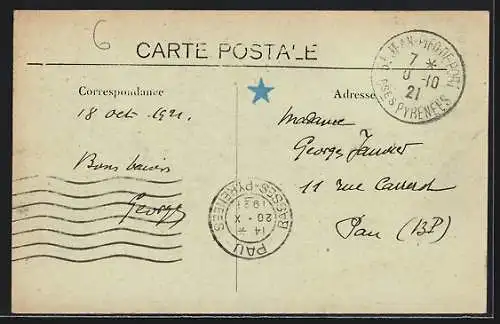 6
CARTE POSTALE
Correspondance
Adresse
18 oct. 1921.
Bons baisers
Georges
Madame
Georges Janvier
11 rue
Pau (BP)
ST JEAN-PIED-DE-PORT
7 *
10
21
BSES PYRENEES
PAU
14 *
20 - X
1921
BASSES-PYRENEES